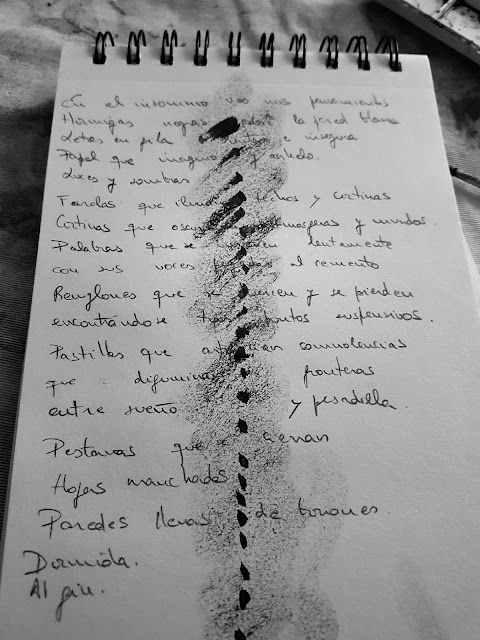 En el insomnio veo mis pensamientos
Hormigas negras sobre la pared blanca
Letras en fila e insegura
Papel que imagino y anhelo.
Luces y sombras
Farolas que techos y cortinas
Cortinas que atmosferas y mundos.
Palabras que se lentamente
con sus voces al cemento
Renglones que se y se pierden
encontrándose puntos suspensivos.
Pastillas que somnolencias
que difuminan fronteras
entre sueño y pesadilla.
Pestañas que se cierran
Hojas manchadas
Paredes llenas de borrones.
Dormida.
Al fin.